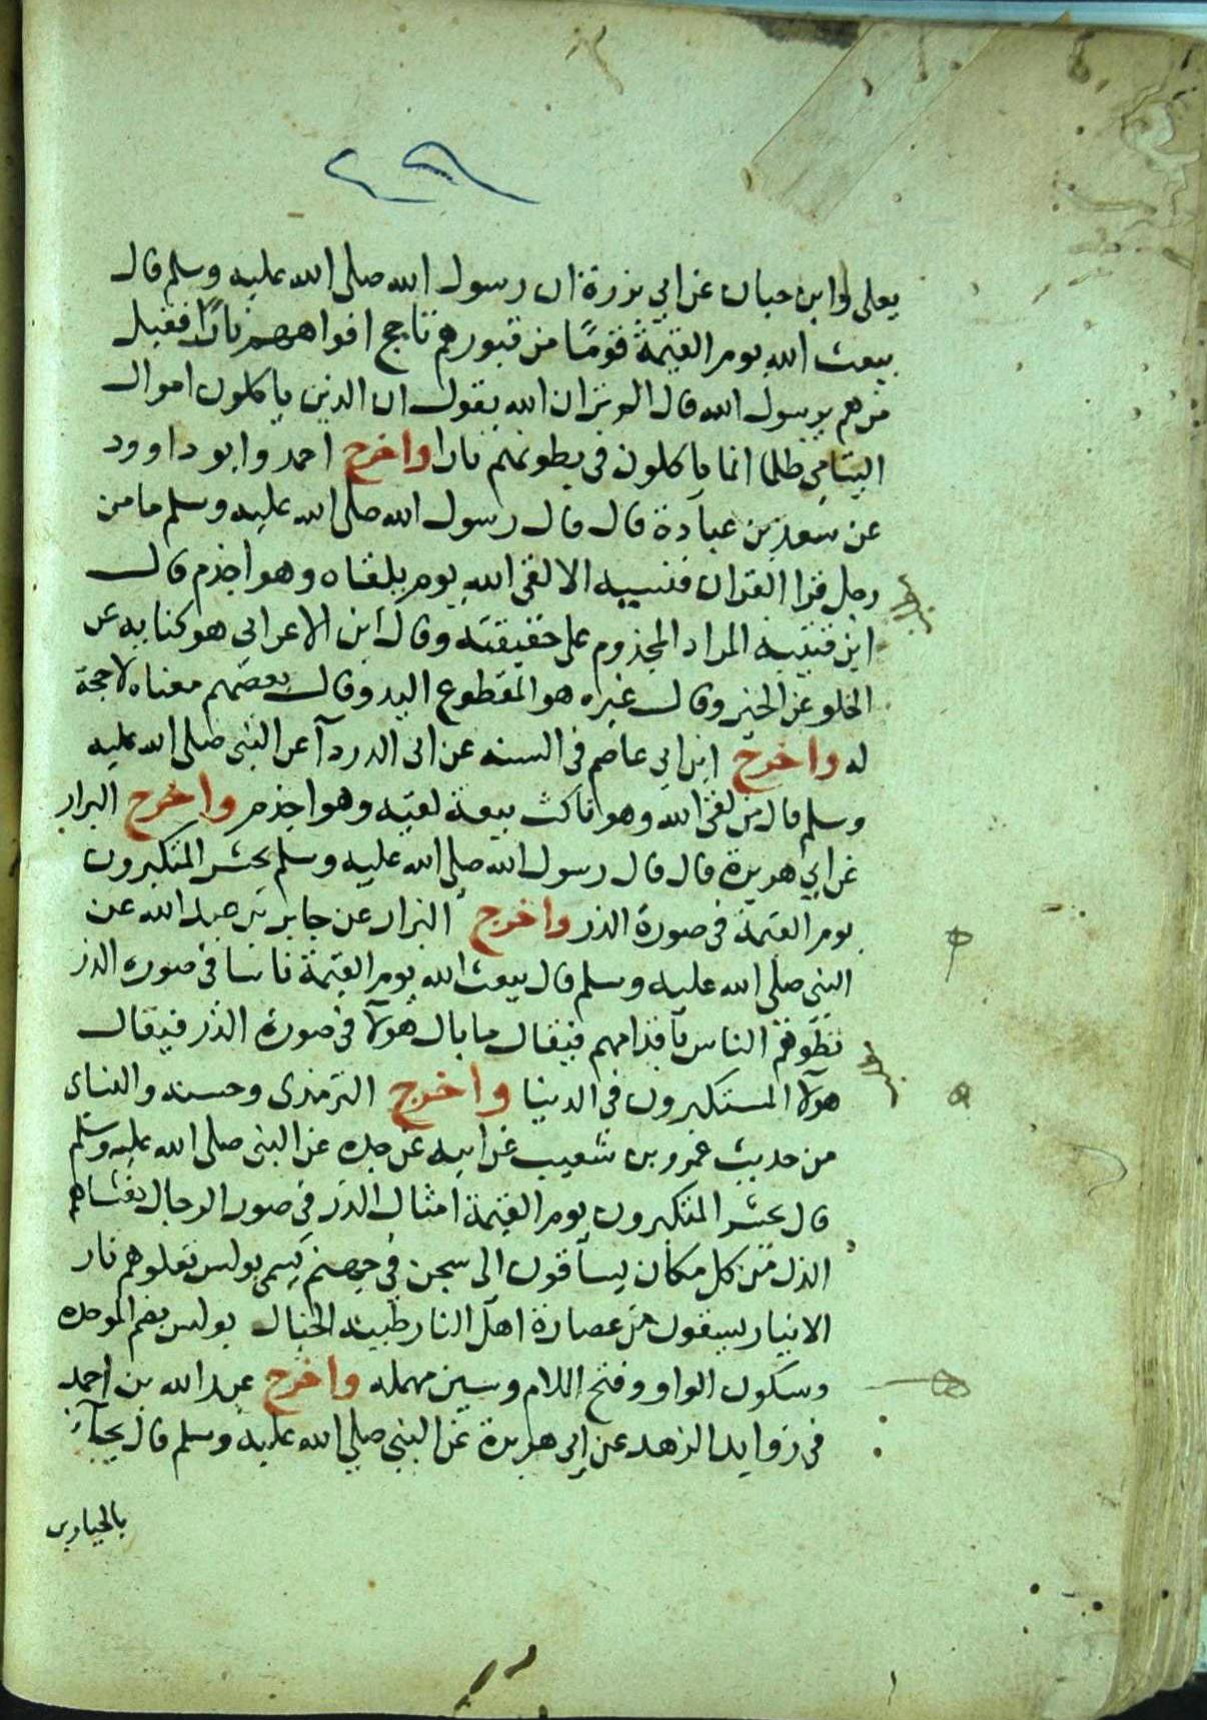 يعلى وابن حبان عن ابي بزرة ان رسول الله صلى الله عليه وسلم قال
يبعث الله يوم القيمة قومًا من قبورهم تاجج افواههم نارًا فقيل
من هم يرسول الله قال الم تر ان الله يقول ان الذين ياكلون اموال
اليتامى ظلما انما ياكلون في بطونهم نارا واخرج احمد وابو داوود
عن سعد بن عبادة قال قال رسول الله صلى الله عليه وسلم ما من
رجل قرا القران فنسيه الا لقى الله يوم يلقاه وهو اجذم قال
ابن قتيبه المراد المجذوم على حقيقته وقال ابن الاعرابي هو كنايه عن
الخلو عن الخير وقال غيره هو المقطوع اليد وقال بعضهم معناه لا حجة
له واخرج ابن ابي عاصم في السنه عن ابى الدردآ عن النبى صلى الله عليه
وسلم قال من لقى الله وهو ناكث بيعة لقيه وهو اجذم واخرج البزار
عن ابي هريرة قال قال رسول الله صلى الله عليه وسلم يحشر المتكبرون
يوم القيمة في صورة الذر واخرج البزار عن جابر بن عبد الله عن
النبى صلى الله عليه وسلم قال يبعث الله يوم القيمة ناسا في صورة الذر
تطوهم الناس باقدامهم فيقال ما بال هولآ في صورة الذر فيقال
هولآ المستكبرون في الدنيا واخرج الترمذى وحسنه والنساى
من حديث عمرو بن شعيب عن ابيه عن جده عن النبى صلى الله عليه وسلم
قال يحشر المتكبرون يوم القيمة امثال الذر في صور الرجال يغشاهم
الذل من كل مكان يساقون الى سجن في جهنم يسمى بولس تعلوهم نار
الانيار يسقون من عصارة اهل النار طينة الخبال بولس بضم الموحده
وسكون الواو وفتح اللام وسين مهمله واخرج عبد الله بن احمد
في زوايد الزهد عن ابى هريرة عن النبى صلى الله عليه وسلم قال يجآء
بالجبارين